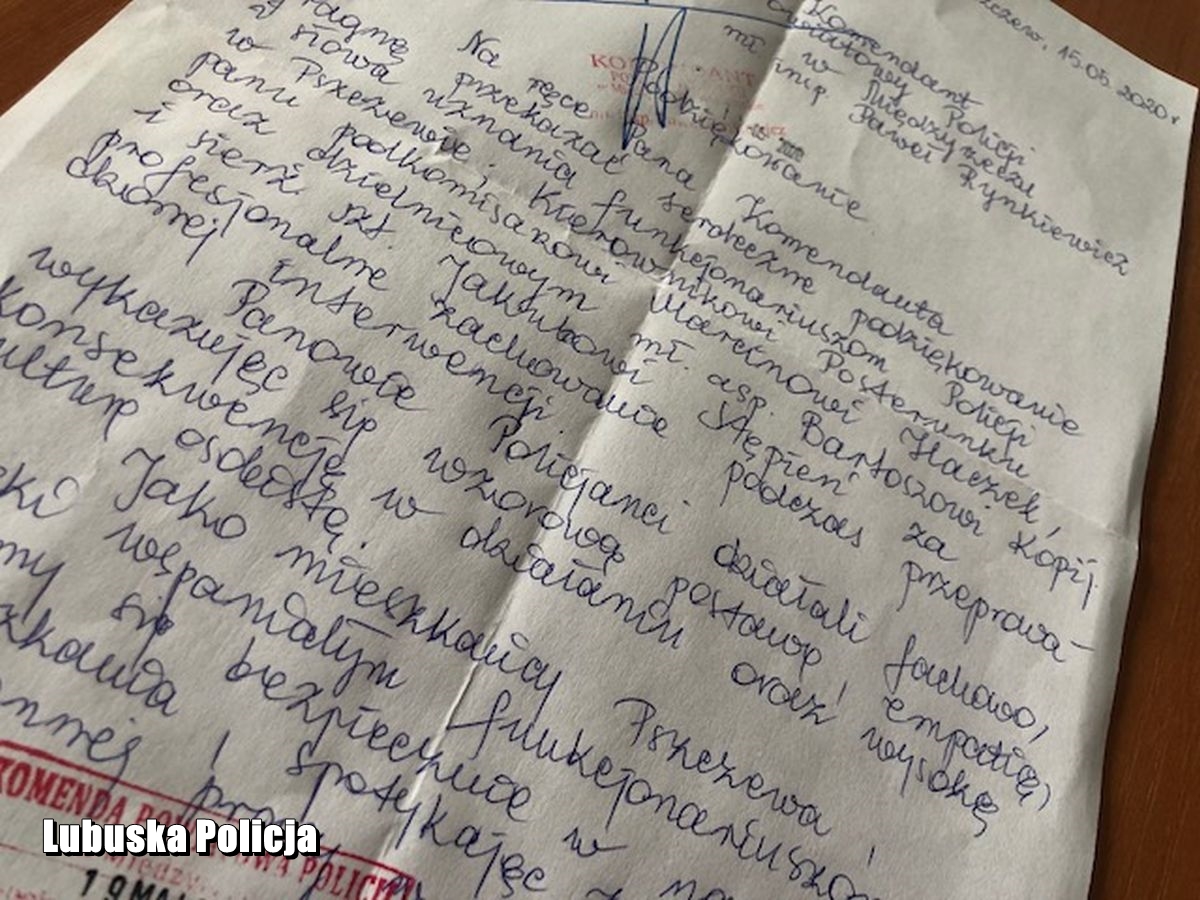 15.05.2020r
Komendant
Powiatowy Policji
w Międzyrzeczu
insp Paweł Rynkiewicz
Podziękowanie
Na ręce Pana Komendanta
pragnę przekazać serdeczne podziękowanie
słowa uznania funkcjonariuszom Policji
w Pszczewie: Kierownikowi Posterunku
panu podkomisarzowi Marcinowi Haczek,
oraz dzielnicowym mł. asp. Bartoszowi Kopij
i sierż. szt. Jakubowi Stępień za
profesjonalne zachowanie podczas przeprowa-
dzonej interwencji.
Panowie Policjanci działali fachowo,
wykazując się wzorową postawą, empatią,
konsekwencją w działaniu oraz wysoką
kulturą osobistą.
Jako mieszkańcy Pszczewa,
wspaniałym funkcjonariuszom
się bezpiecznie w
spotykając
KOMENDA POWIATOWA POLICJI
19 MAJ
Lubuska Policja